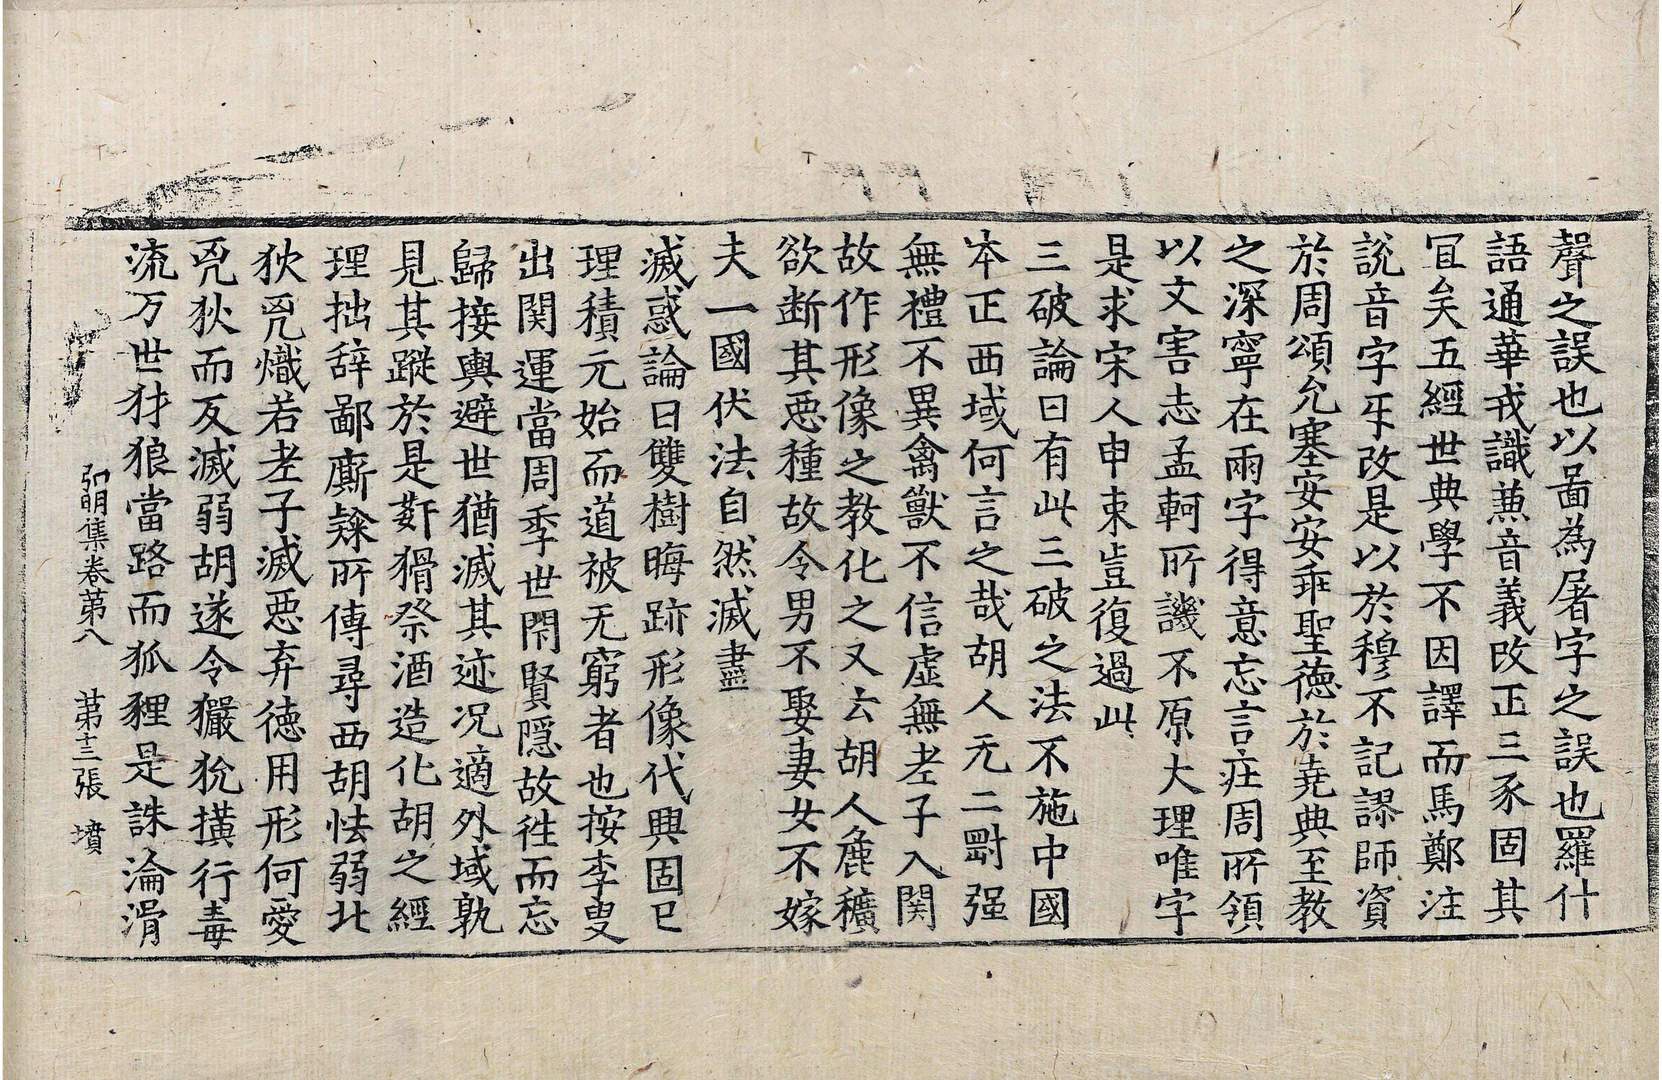 聲之誤也以啚為屠字之誤也羅什
語通華戎識兼音義改正三豕固其
冝矣五經世典學不因譯而馬鄭注
說音字㸦改是以於穆不記謬師資
於周頌允塞安安乖聖徳於堯典至教
之深寧在兩字得意忘言荘周所領
以文害志孟軻所譏不原大理唯字
是求宋人申束豈復過此
三破論曰有此三破之法不施中國
夲正西域何言之㢤胡人无二對强
無禮不異禽獸不信虛無老子入関
故作形像之教化之又云胡人麁穬
欲断其惡種故令男不娶妻女不嫁
夫一國伏法自然滅盡
滅惑論曰雙樹晦跡形像代興固已
理積元始而道被无窮者也按李叟
出関運當周季世閇賢隠故徃而忘
歸接輿避世猶滅其迹况適外域孰
見其蹤於是姧猾祭酒造化胡之經
理拙辞鄙廝𨽻所傳尋西胡怯弱北
狄㐫熾若老子滅惡弃徳用形何愛
㐫狄而反滅弱胡遂令玁狁橫行毒
流万世豺狼當路而狐狸是誅淪滑
弘明集卷第八　第十三張　墳